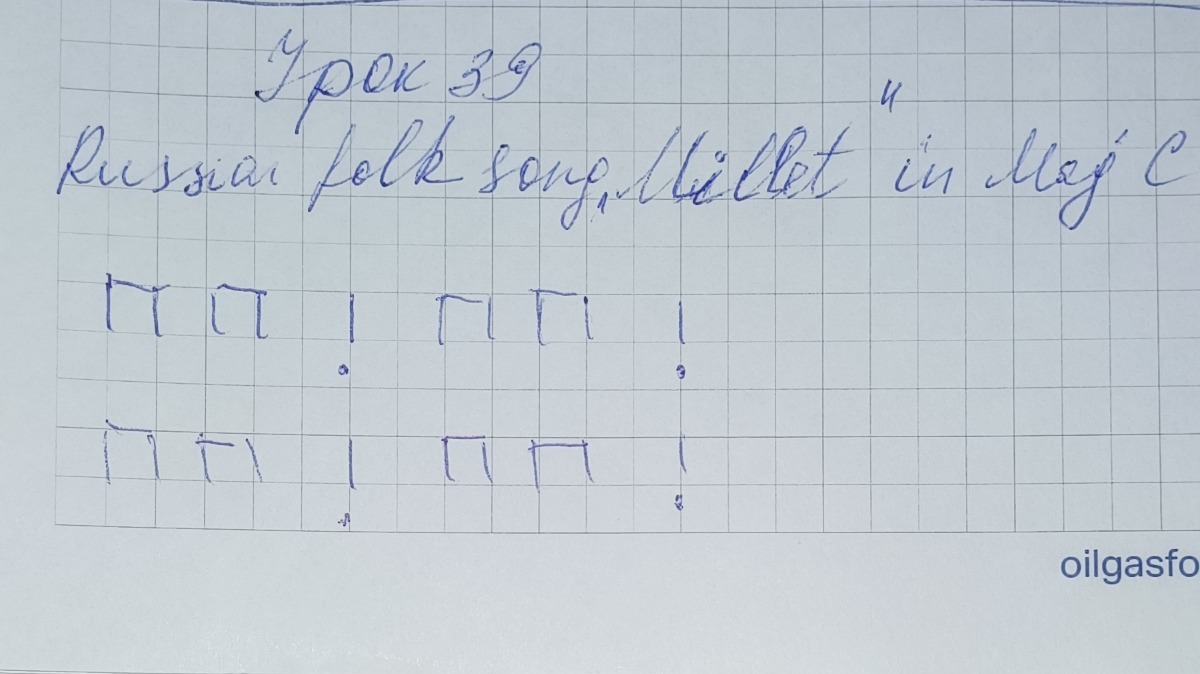 Урок 39
Russian folk song „Millet" in Maj C
П П | П П |
П П | П П |
oilgasfo